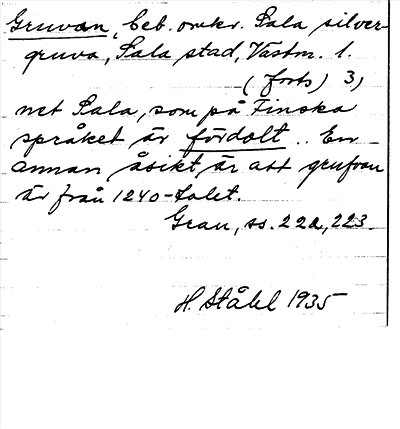 Gruvan, beb. omkr. Sala silver-
gruva, Sala stad, Västm. l.
(forts) 3)
net Sala, som på Finska
språket är fördolt .. En
annan åsikt är att grufvan
är från 1240-talet.
Grau, ss. 222, 223.
H. Ståhl 1935